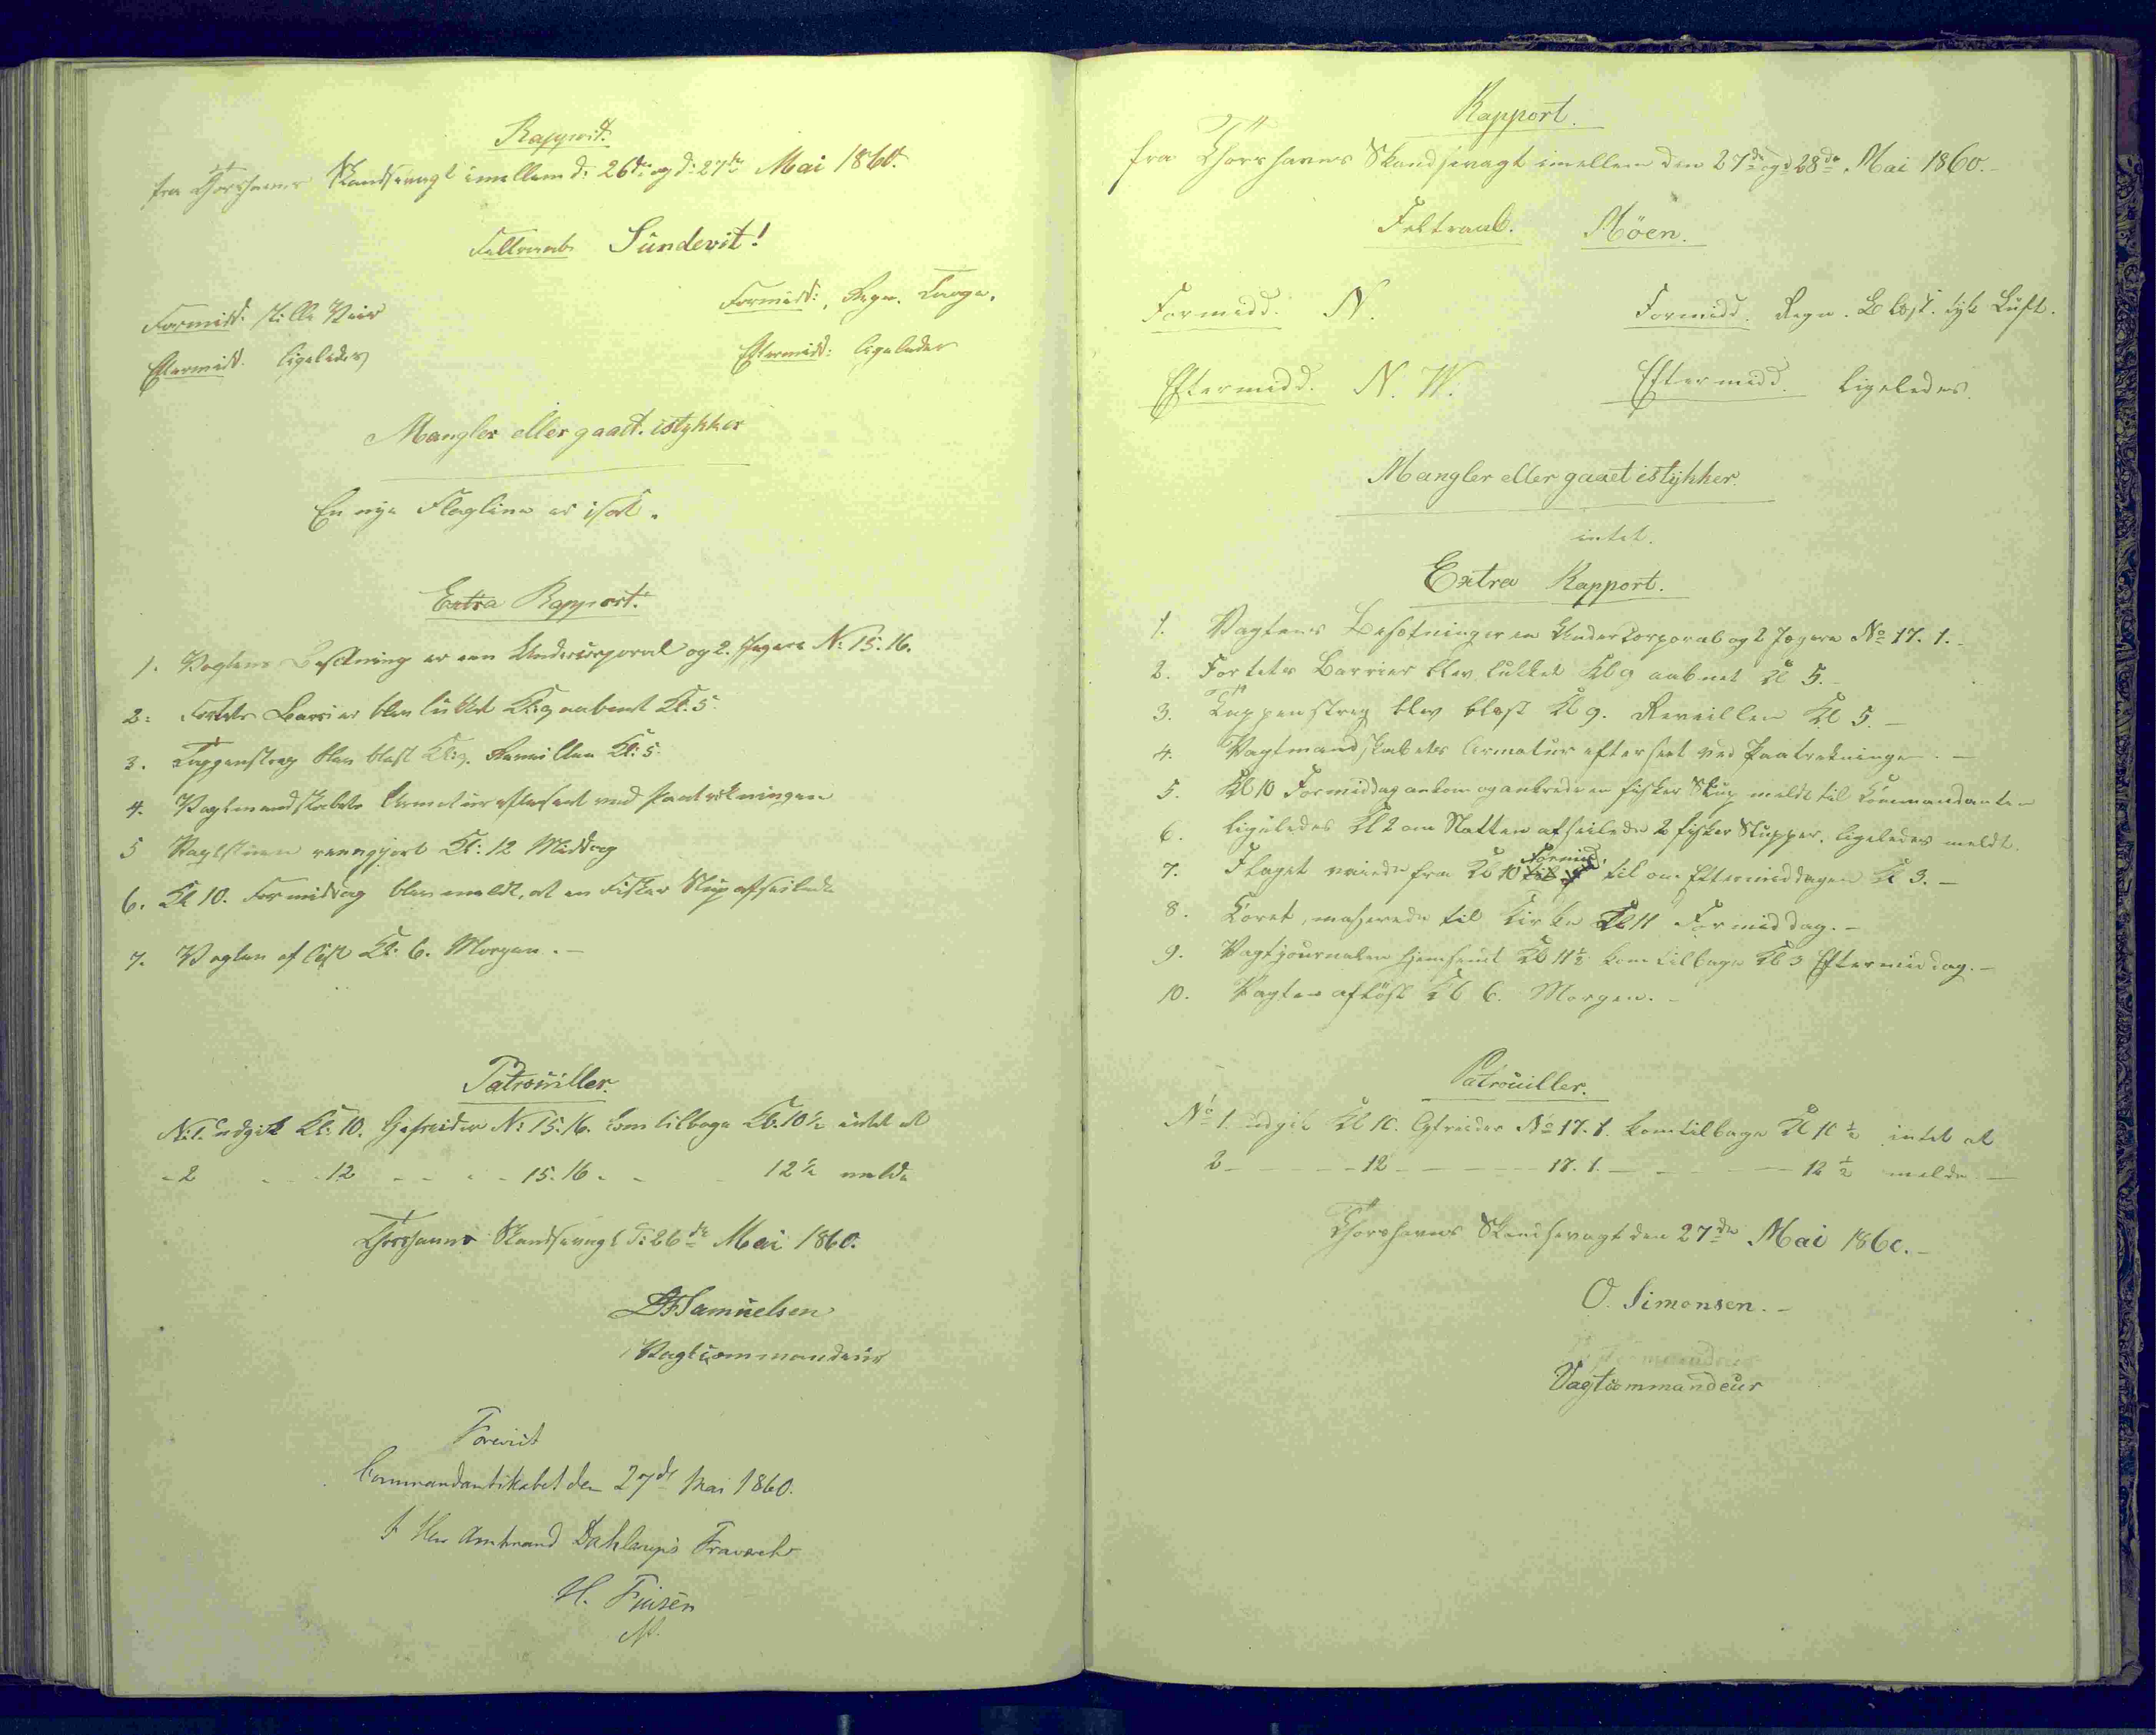 Rapport.
fra Thorshavns Skandsevagt imellem d: 26de og d: 27de Mai 1860.
Feltraab Sundevit!
Formidd: stille Veir
Formidd:, Regn. Taage.
Eftermidd. ligeledes
Eftermidd: ligeledes
Mangler eller gaaet istykker
En nye Flagline er isat.
Extra Rapport.
1. Vagtens Besætning er een Undercorporal og 2. Jægere No 15. 16.
2: Fortets Barrier blev lukket Kl: 9 aabent Kl: 5.
3. Tappenstreg blev blæst Kl: 9. Reveillen Kl: 5.
4. Vagtmandskabets Armatur efterseet ved Paatrækningen
5 Vagtstuen reengjort Kl: 12 Middag
6. Kl 10. Formiddag blev meldt, at en Fisker Slup afseilede
7. Vagten afløst Kl: 6. Morgen. –
Patrouiller.
No: 1. udgik Kl: 10. Gefreider No: 15. 16. kom tilbage Kl. 10 ½ intet at
- 2 - - 12 - - - - 15. 16 - - - 12 ½ melde
Thorshavns Skandsevagt d: 26de Mai 1860.
Samuelsen
Vagtcommandeur
Foreviist
Commandantskabet den 27de Mai 1860.
I Herr Amtmand Dahlerups Fraværelse
H. Finsen
Rapport.
fra Thorshavns Skandsevagt imellem den 27de og 28de Mai 1860. –
Feltraab. Möen.
Formidd. N.
Formidd. Regn. Blæst. tyk Luft.
Eftermidd. N. W.
Eftermidd. ligeledes.
Mangler eller gaaet istykker.
intet.
Extra Rapport.
1. Vagtens Besætning er en Undercorporal og 2 Jægere No 17. 1. –
2. Fortets Barrier blev lukket Kl 9 aabnet Kl 5. –
3. Tappenstreg blev blæst Kl 9. Reveillen Kl 5. –
4. Vagtmandskabets Armatur efterseet ved Paatrækningen. –
5. Kl 10 Formiddag ankom og ankrede en fisker Slup meldt til Commandanten
6. Ligeledes Kl 2 om Natten afseilede 2 fisker Slupper. ligeledes meldt.
7. Flaget vaiede fra Kl 10 Formid. til om Eftermiddagen Kl 3. –
8. Coret, marserede til Kirke Kl 11 Formiddag. –
9. Vagtjournalen hjemsendt Kl 11 ½ kom tilbage Kl 3 Eftermiddag. –
10. Vagten aflöst Kl 6. Morgen. –
Patrouiller.
No 1. udgik Kl 10. Gfreider No 17. 1. kom tilbage Kl 10 ½ intet at
2 – – – – 12 – – – – 17. 1. – – – – – 12 ½ melde –
Thorshavns Skandsevagt den 27de Mai 1860. –
O. Simonsen. –
Vagtcommandeur